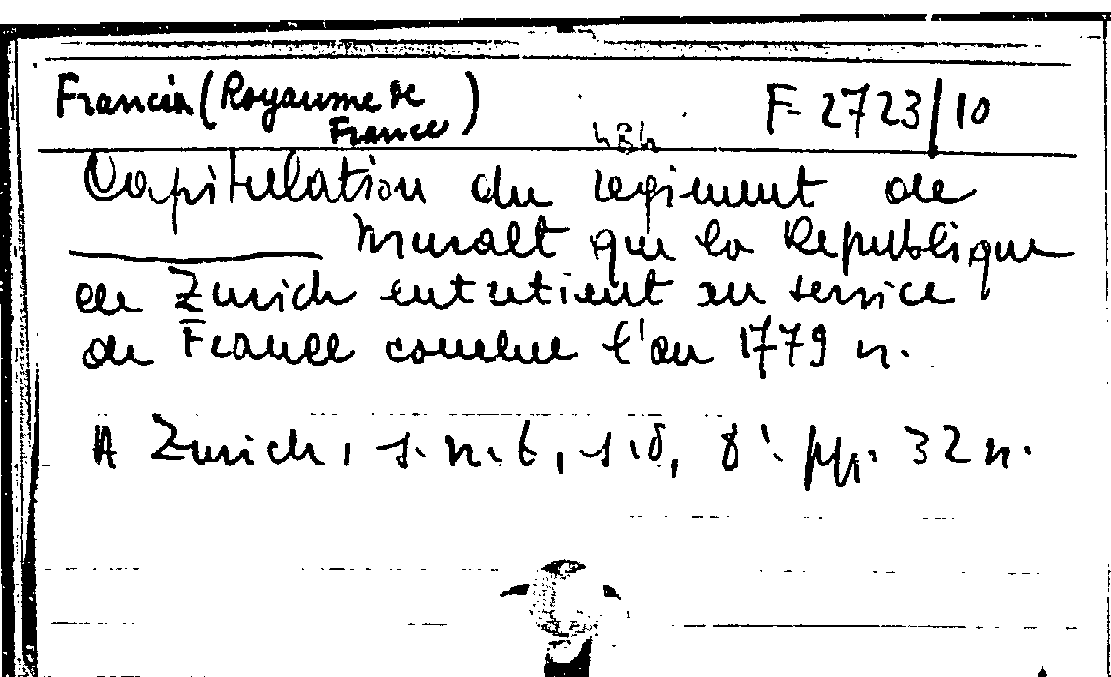 Francia (Royaume de France) F 2723/10
484
Capitulation du regiment de
Muralt que la Republique
de Zurich entretient au service
de France conclue l'an 1779 n.
A Zurich, s.n.t, s.d, 8º. pp. 32 n.